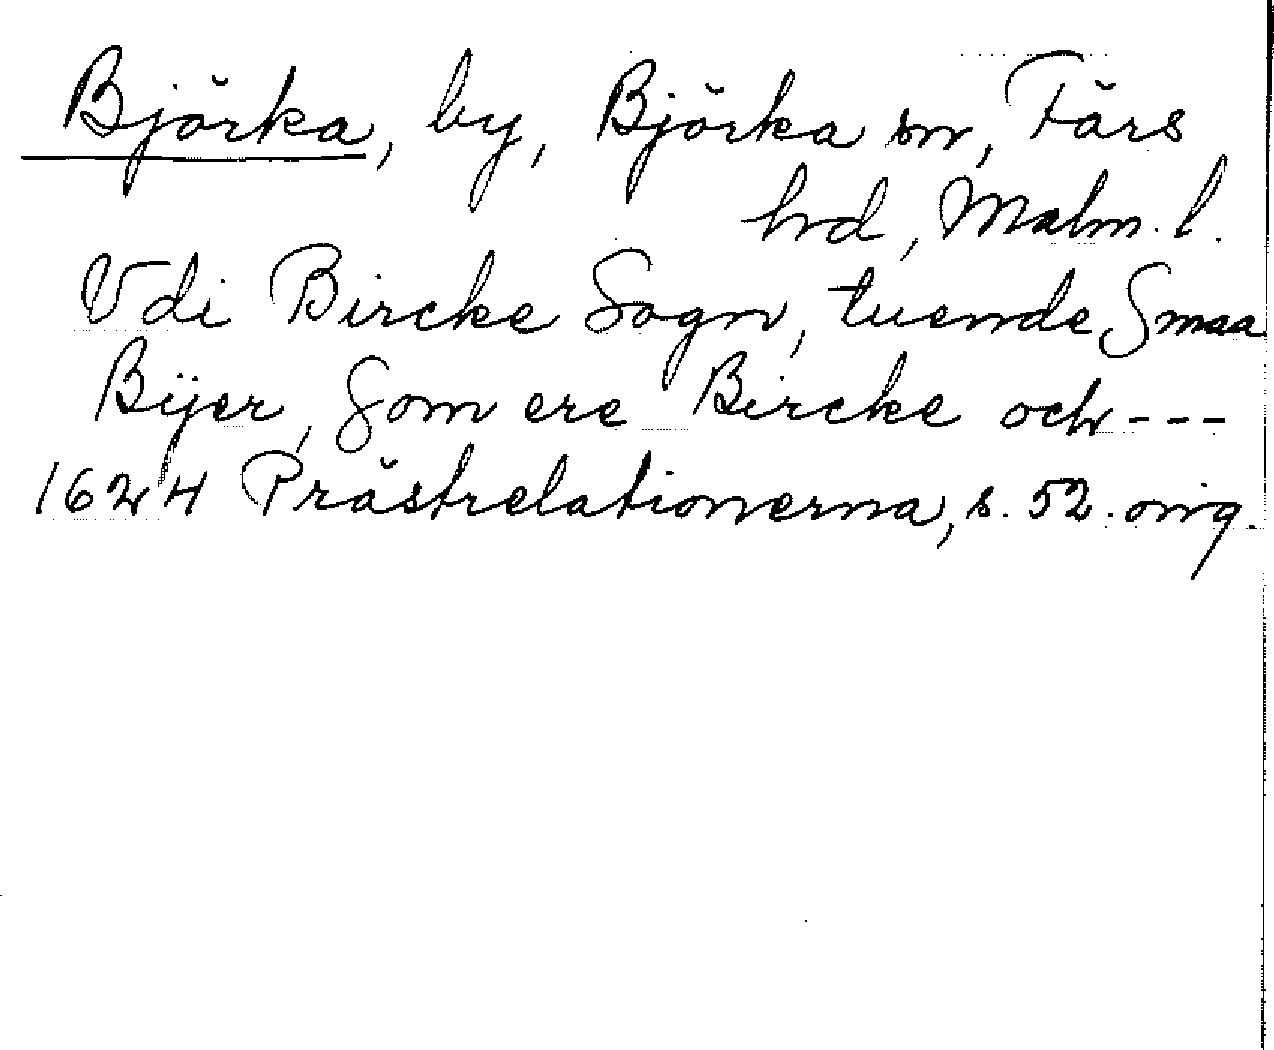 Björka, by, Björka sn, Färs
hd, Malm. l.
Vdi Bircke Sogn, tuende Smaa
Bÿer, Som ere Bircke och ---
1624 Prästrelationerna, s. 52. orig.